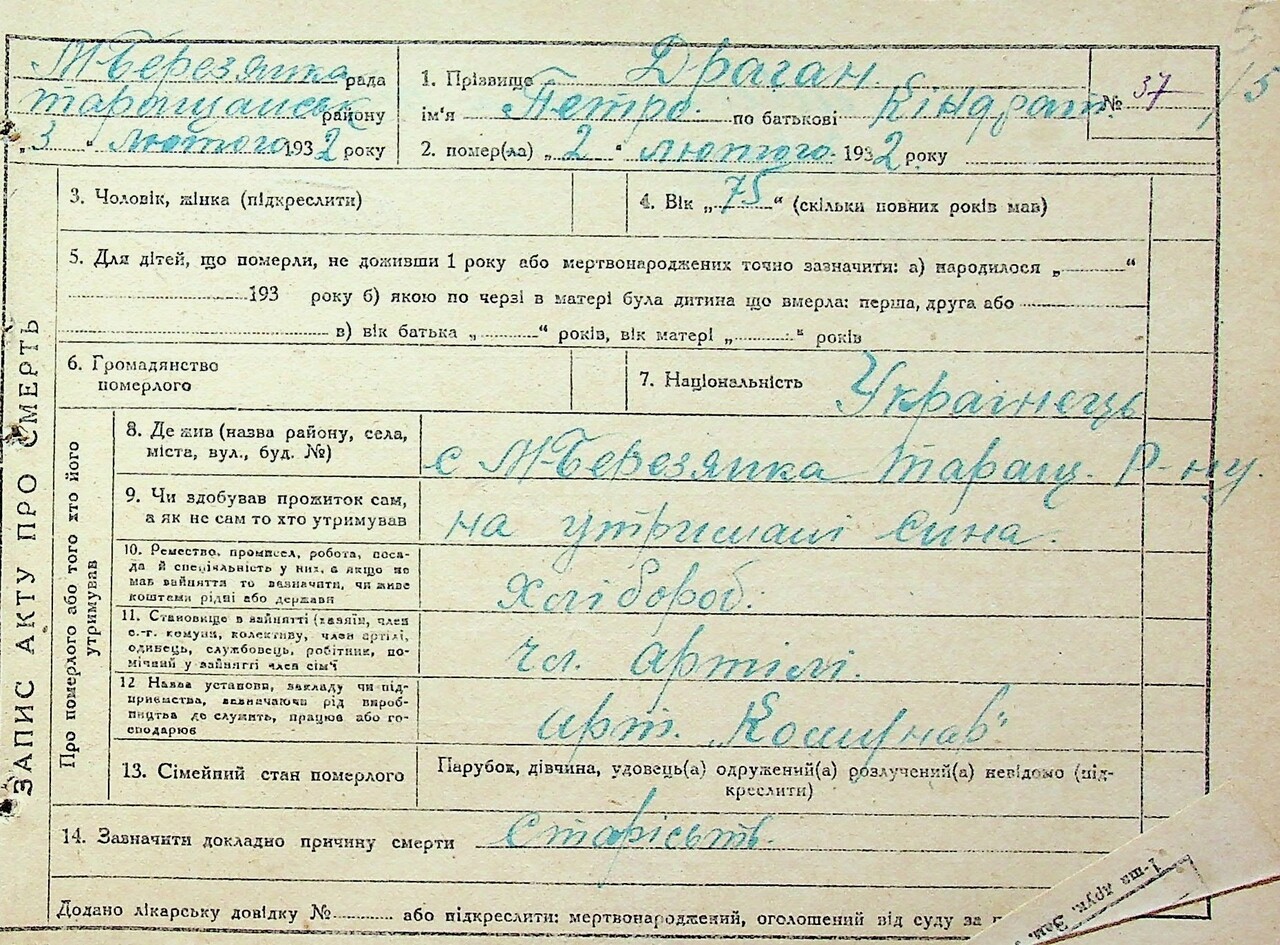 5
М-Березянка рада
таращанськ району
„3“ лютого 1932 року
1. Прізвище Драган
ім'я Петро по батькові Кіндрат
№ 37
/5
2. помер(ла) „2“ лютого 1932 року
3. Чоловік, жінка (підкреслити)
4. Вік „75“ (скільки повних років мав)
5. Для дітей, що померли, не доживши 1 року або мертвонароджених точно зазначити: а) народилося „.........“
193 року б) якою по черзі в матері була дитина що вмерла: перша, друга або
в) вік батька „.........“ років, вік матері „.........“ років
6. Громадянство
померлого
7. Національність Українець
ЗАПИС АКТУ ПРО СМЕРТЬ
Про померлого або того хто його
утримував
8. Де жив (назва району, села,
міста, вул., буд. №)
с М-Березянка Таращ. Р-ну.
9. Чи здобував прожиток сам,
а як не сам то хто утримував
на утримані сина.
10. Ремество, промисел, робота, поса-
да й спеціяльність у них, а якщо не
мав зайняття то зазначити, чи живе
коштами рідні або держави
Хлібороб.
11. Становище в зайнятті (хазяїн, член
с.-г. комуни, колективу, член артілі,
одинець, службовець, робітник, по-
мічний у зайнятті член сім'ї
чл. артілі.
12 Назва установи, закладу чи під-
приємства, зазначаючи рід вироб-
ництва де служить, працює або го-
сподарює
арт. „Комунар"
13. Сімейний стан померлого
Парубок, дівчина, удовець(а) одружений(а) розлучений(а) невідомо (під-
креслити)
14. Зазначити докладно причину смерти старість.
Додано лікарську довідку №......... або підкреслити: мертвонароджений, оголошений від суду за
1-ша друк. Зам.